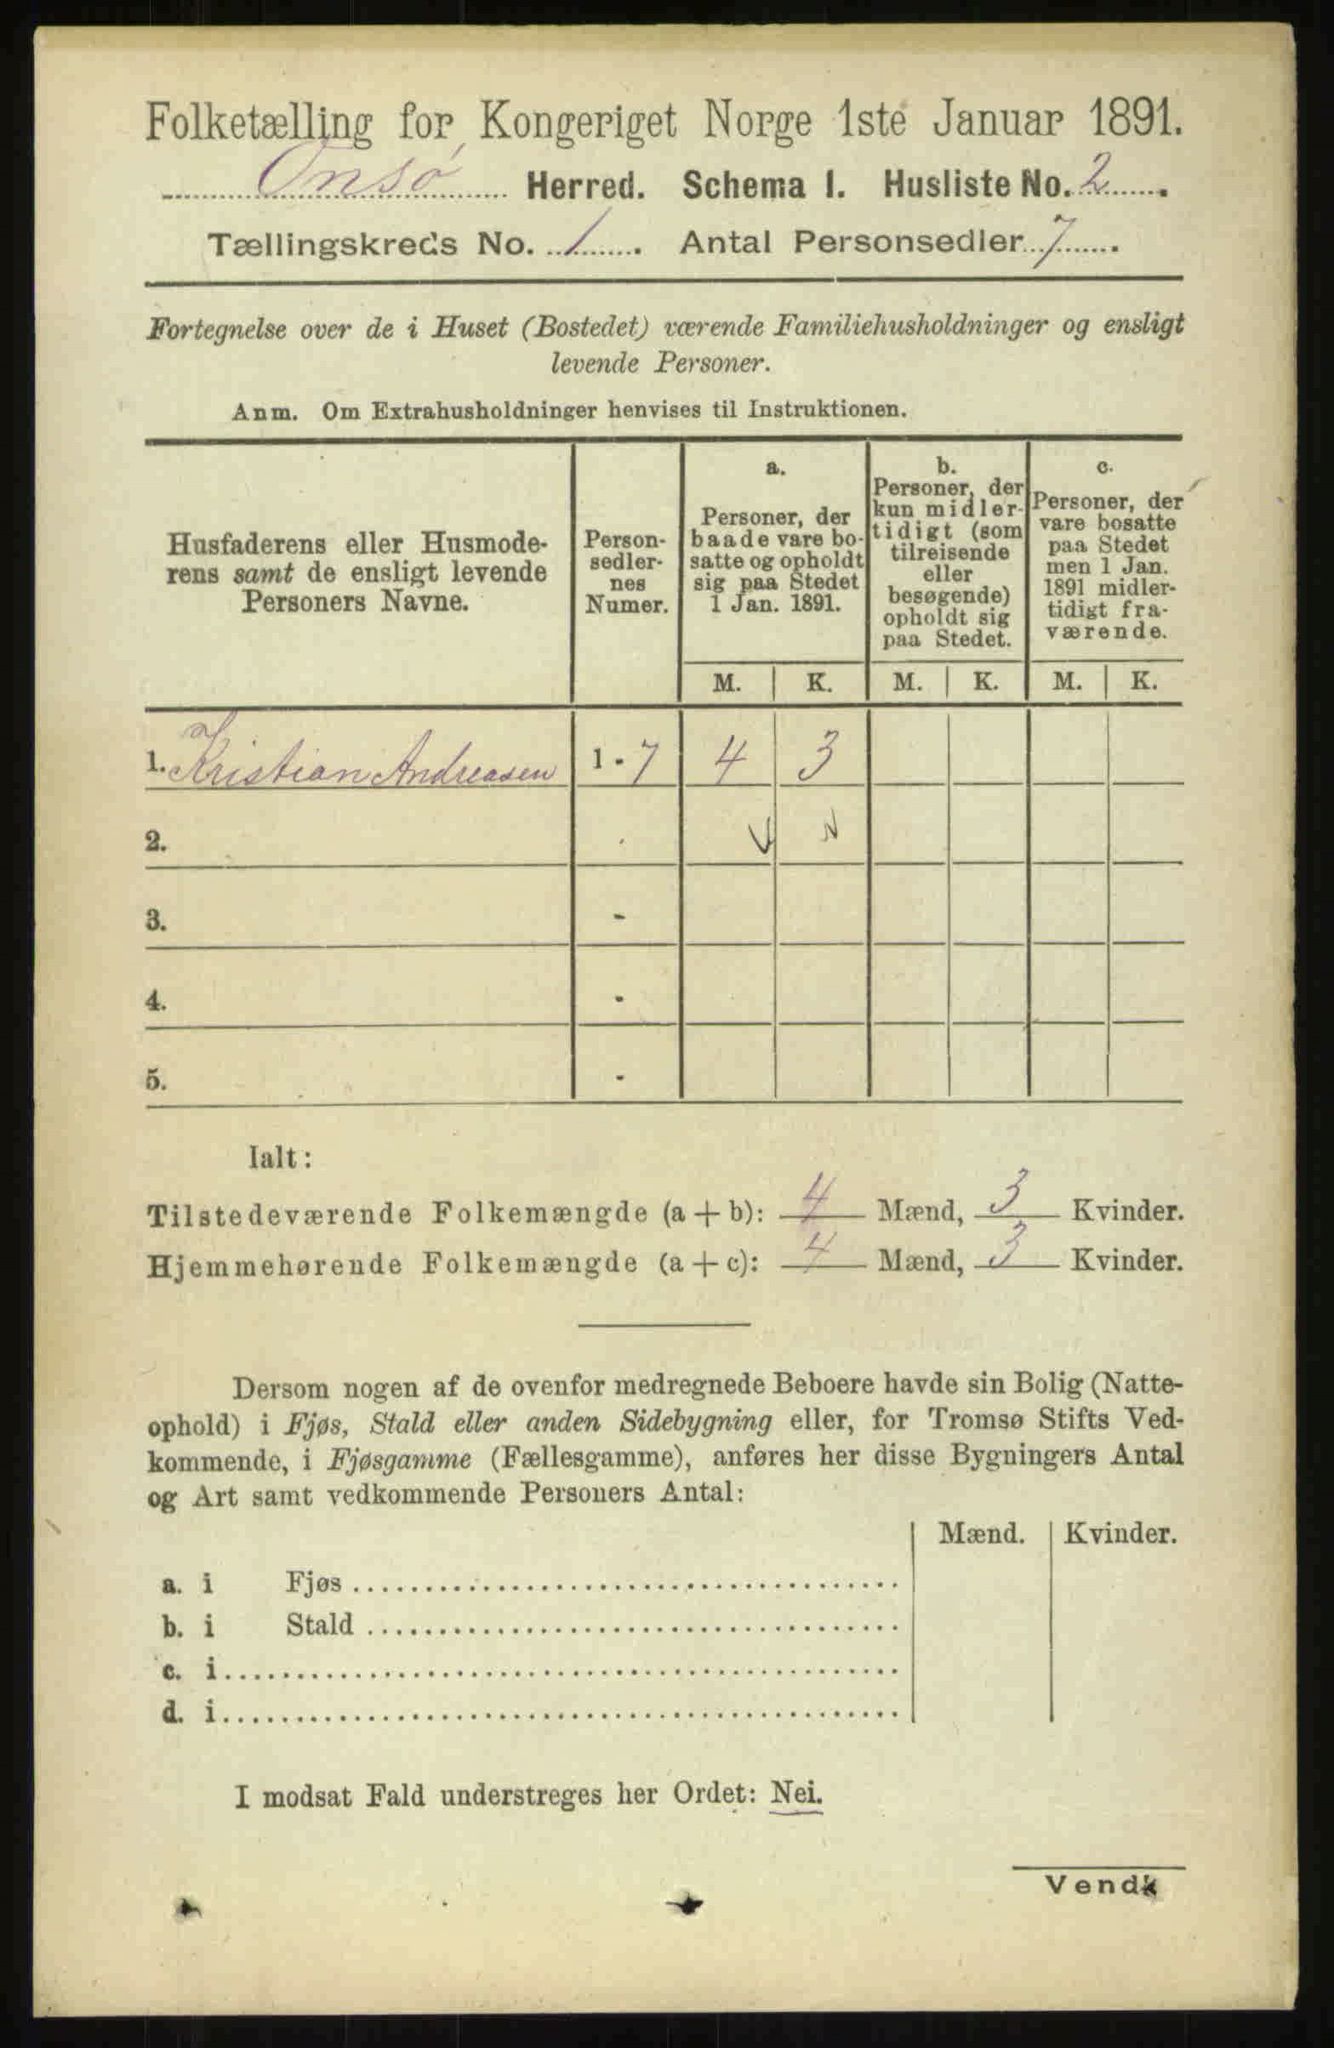 Folketælling for Kongeriget Norge 1ste Januar 1891.
Onsø Herred. Schema I. Husliste No. 2.
Tællingskreds No. 1. Antal Personsedler 7.
Fortegnelse over de i Huset (Bostedet) værende Familiehusholdninger og ensligt
levende Personer.
Anm. Om Extrahusholdninger henvises til Instruktionen.
Husfaderens eller Husmode-
rens samt de ensligt levende
Personers Navne.
Person-
sedler-
nes
Numer.
a.
Personer, der
baade vare bo-
satte og opholdt
sig paa Stedet
1 Jan. 1891.
b.
Personer, der
kun midler-
tidigt (som
tilreisende
eller
besøgende)
opholdt sig
paa Stedet.
c.
Personer, der
vare bosatte
paa Stedet
men 1 Jan.
1891 midler-
tidigt fra-
værende.
M. K. M. K. M. K.
1. Kristian Andreasen 1 - 7 4 3
2.
3. -
4. -
5. -
Ialt:
Tilstedeværende Folkemængde (a + b): 4 Mænd, 3 Kvinder.
Hjemmehørende Folkemængde (a + c): 4 Mænd, 3 Kvinder.
Dersom nogen af de ovenfor medregnede Beboere havde sin Bolig (Natte-
ophold) i Fjøs, Stald eller anden Sidebygning eller, for Tromsø Stifts Ved-
kommende, i Fjøsgamme (Fællesgamme), anføres her disse Bygningers Antal
og Art samt vedkommende Personers Antal:
Mænd. Kvinder.
a. i Fjøs
b. i Stald
c. i
d. i
I modsat Fald understreges her Ordet: Nei.
Vend